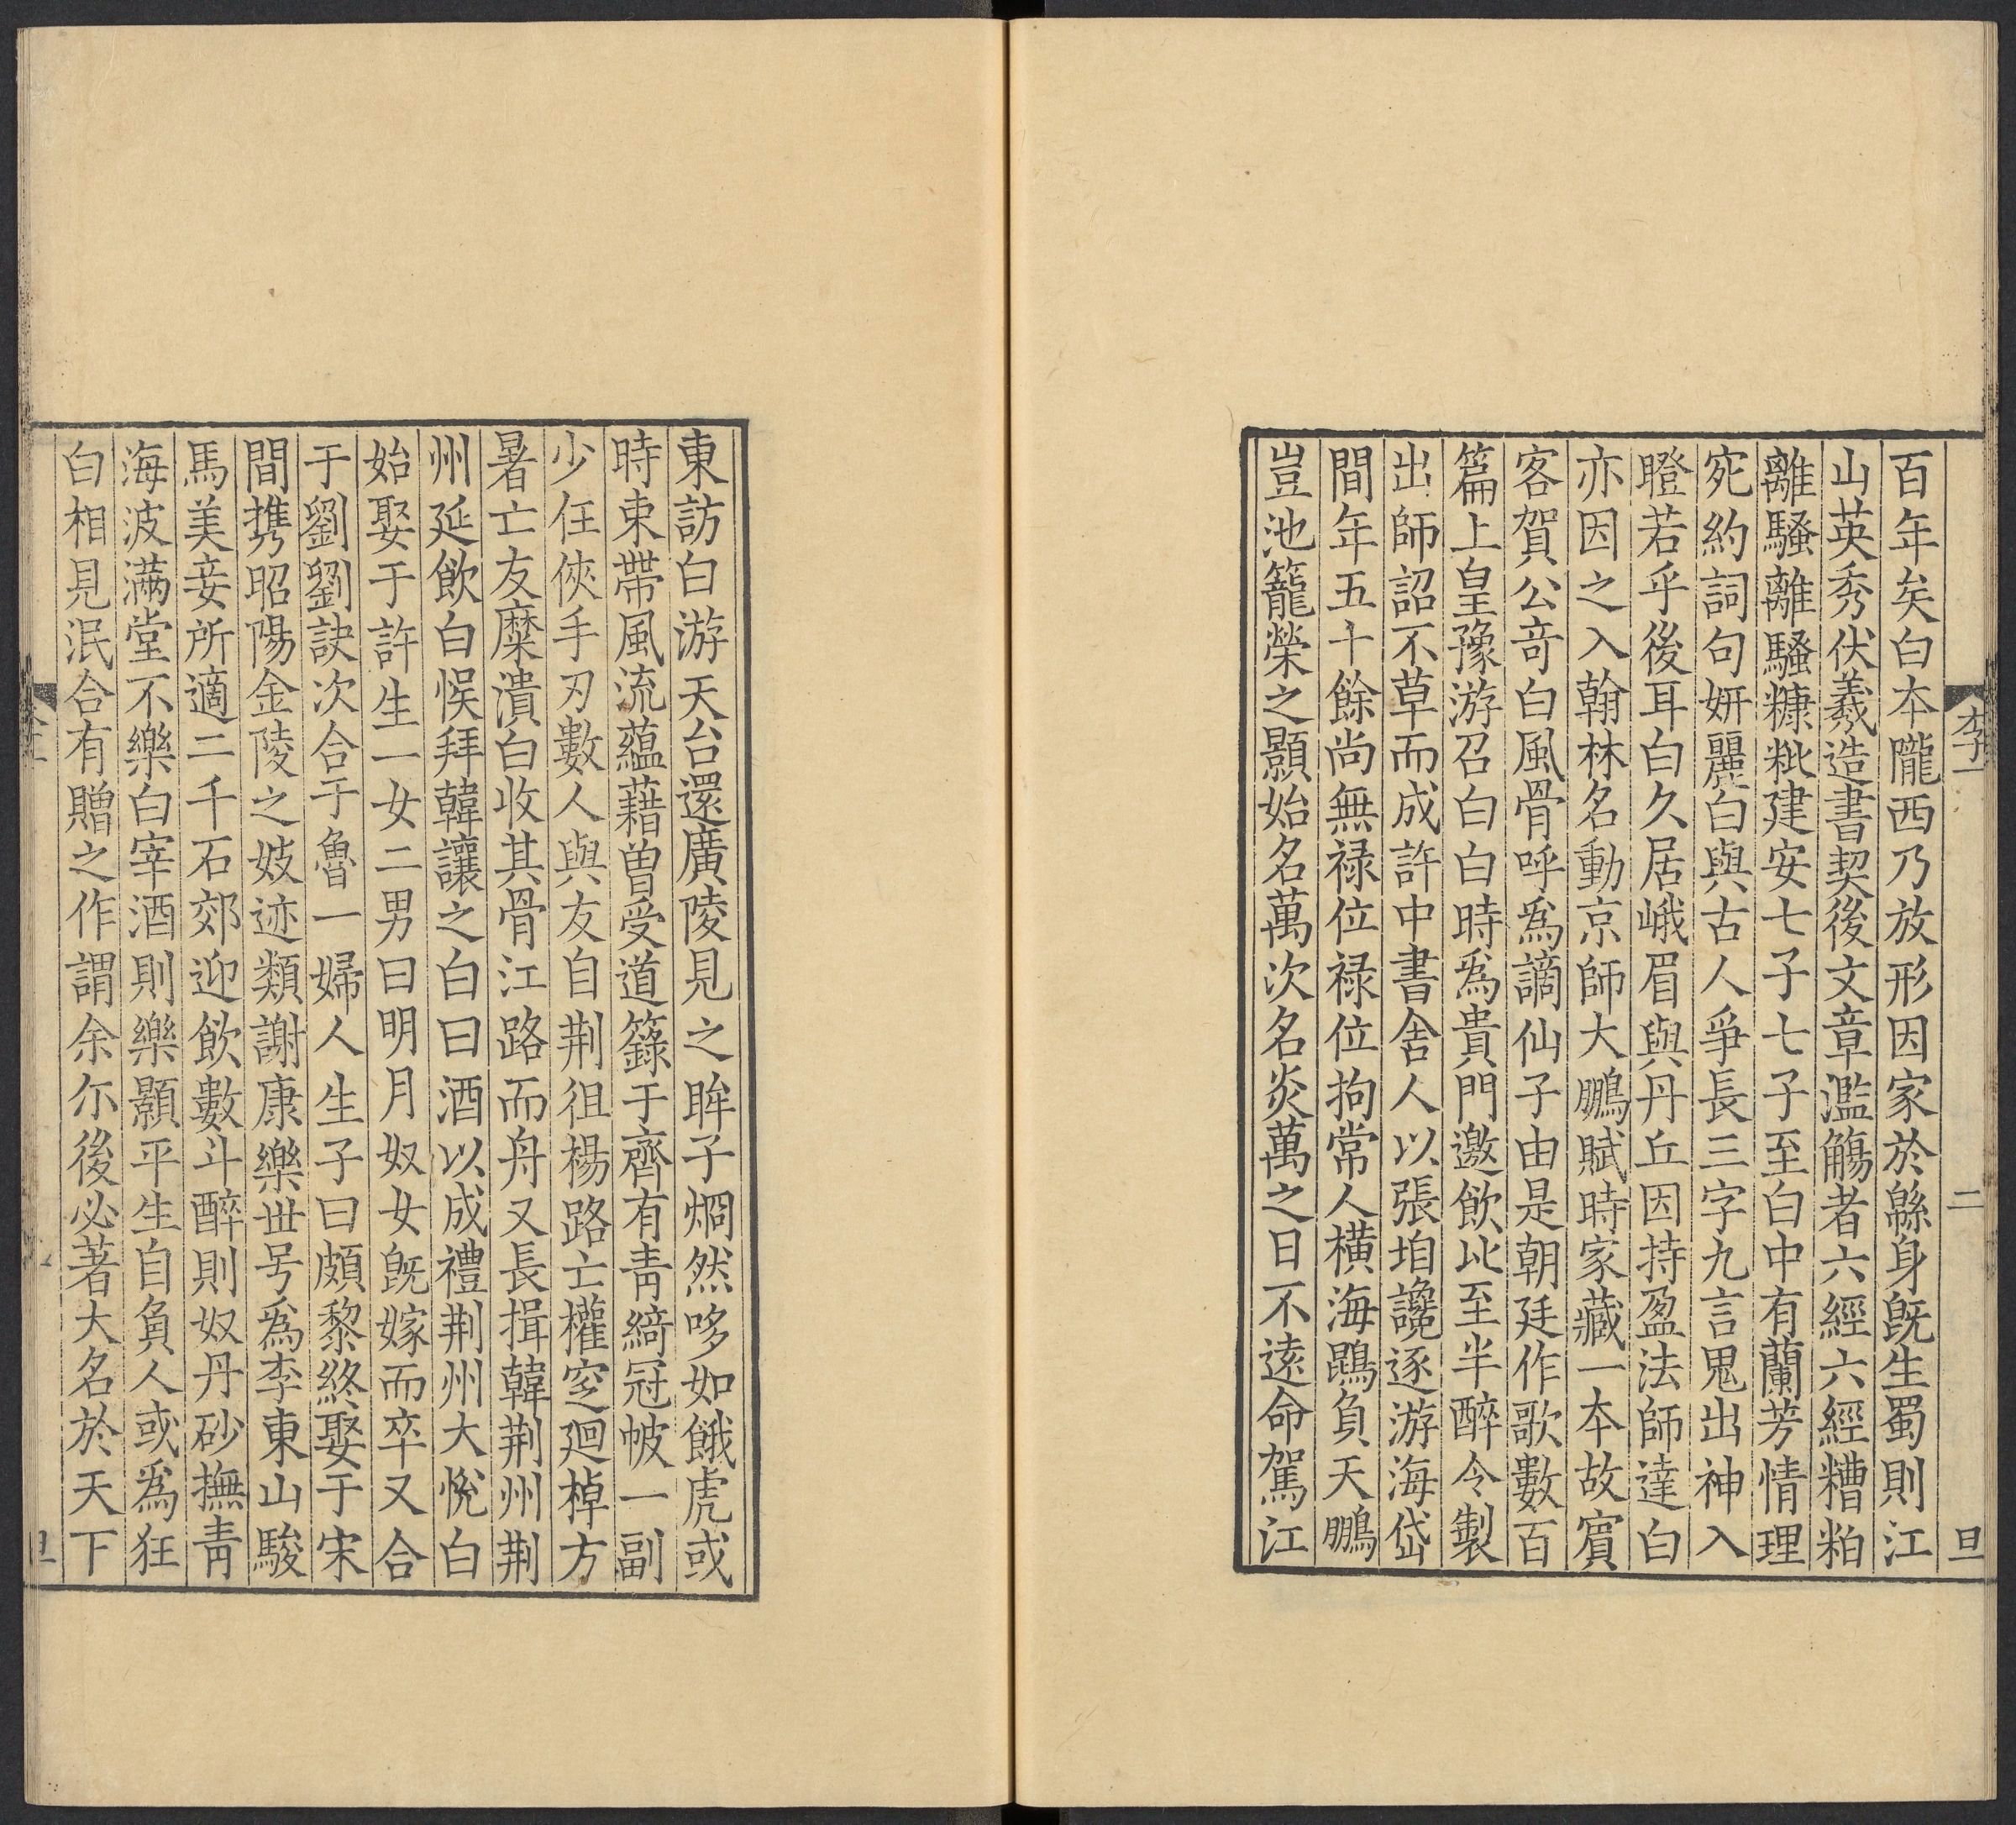 李一
二
旦
百年矣白本隴西乃放形因家於緜身旣生蜀則江
山英秀伏羲造書契後文章濫觴者六經六經糟粕
離騷離騷糠粃建安七子七子至白中有蘭芳情理
宛約詞句妍麗白與古人爭長三字九言鬼出神入
瞪若乎後耳白久居峨眉與丹丘因持盈法師達白
亦因之入翰林名動京師大鵬賦時家藏一本故賔
客賀公竒白風骨呼爲謫仙子由是朝廷作歌數百
篇上皇豫游召白白時爲貴門邀飲比至半醉令製
出師詔不草而成許中書舍人以張垍讒逐游海岱
間年五十餘尚無禄位禄位拘常人横海鵾負天鵬
豈池籠榮之顥始名萬次名炎萬之日不遠命駕江
東訪白游天台還廣陵見之眸子烱然哆如餓虎或
時束帶風流蘊藉曽受道籙于齊有青綺冠帔一副
少任俠手刃數人與友自荆徂楊路亡權窆廻棹方
暑亡友糜潰白收其骨江路而舟又長揖韓荆州荆
州延飲白悞拜韓讓之白曰酒以成禮荆州大悅白
始娶于許生一女二男曰明月奴女旣嫁而卒又合
于劉劉訣次合于魯一婦人生子曰頗黎終娶于宋
間攜昭陽金陵之妓迹類謝康樂世号爲李東山駿
馬美妾所適二千石郊迎飲數斗醉則奴丹砂撫青
海波滿堂不樂白宰酒則樂顥平生自負人或爲狂
白相見泯合有贈之作謂余尓後必著大名於天下
旦